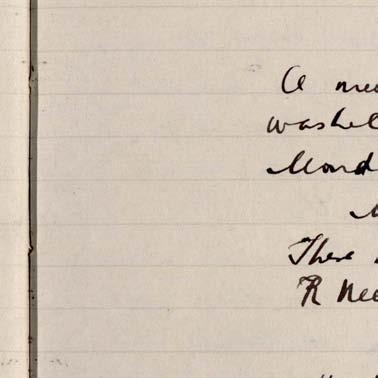 A mee
washel
Mond
There
R Nee